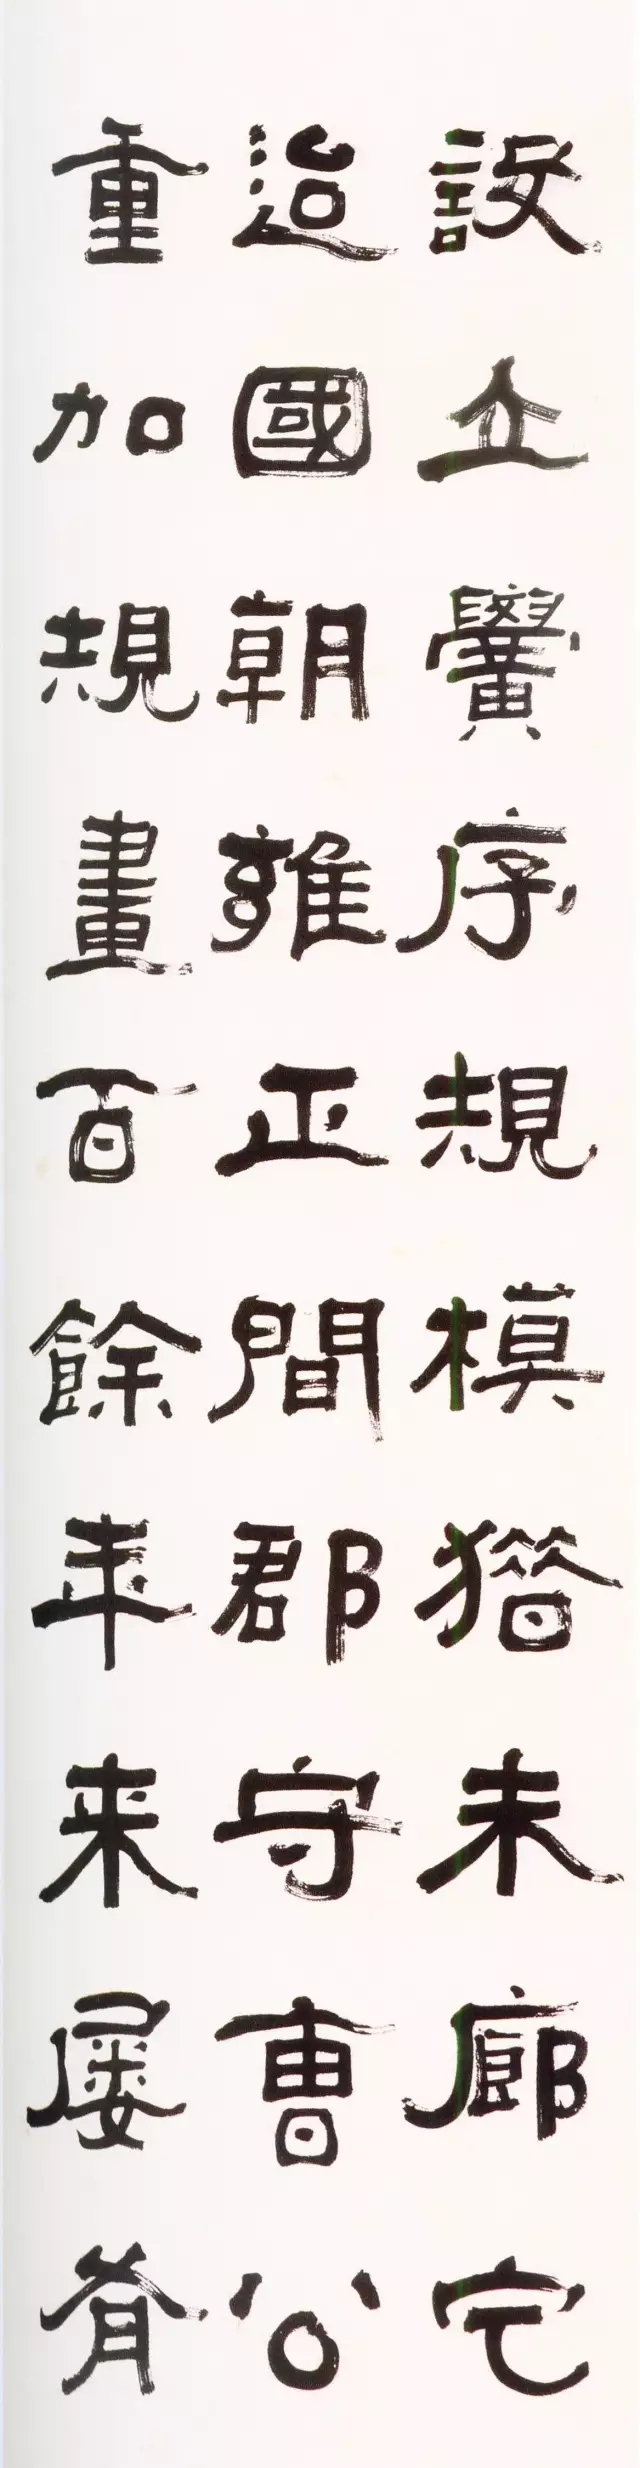 設立黌序規模猶未廓它
迨國朝雍正間郡守曹公
重加規畫百餘年来屢有